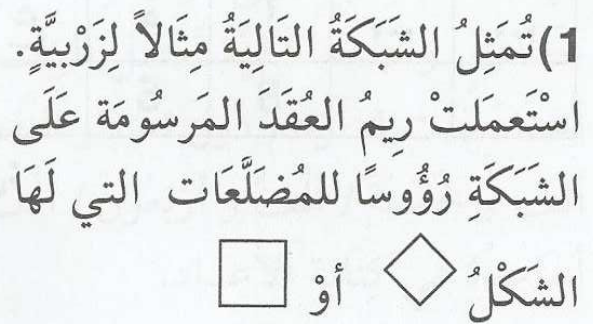 1) تُمَثِلُ الشَبَكَةُ التَالِيَةُ مِثَالاً لِزَرْبيَّةٍ.
اسْتَعمَلتْ رِيمُ العُقَدَ المَرسُومَة عَلَى
الشَبَكَةِ رُؤُوسًا للمُضَلَّعَات التي لَهَا
الشَكْلُ ◇ أوْ □